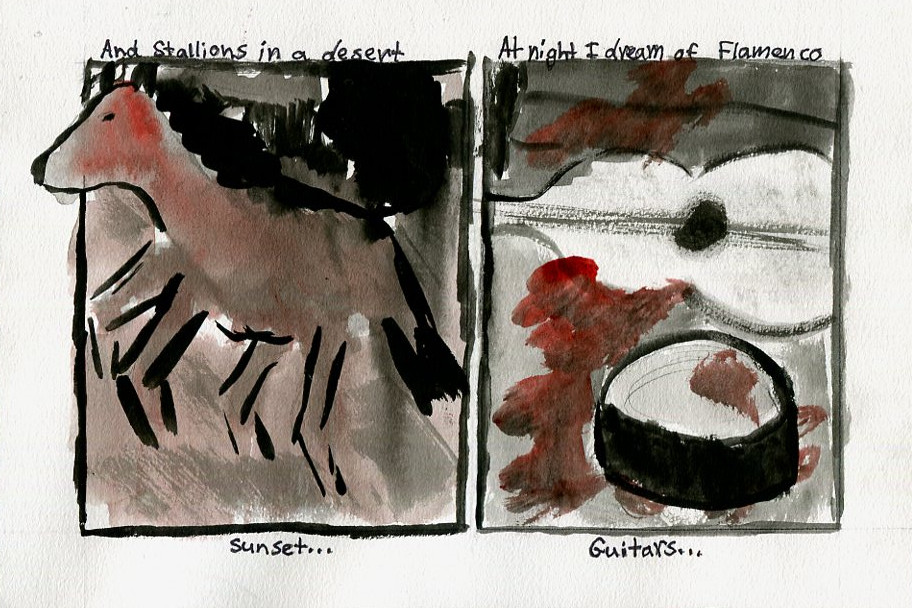 And Stallions in a desert
sunset...
At night I dream of Flamenco
Guitars...